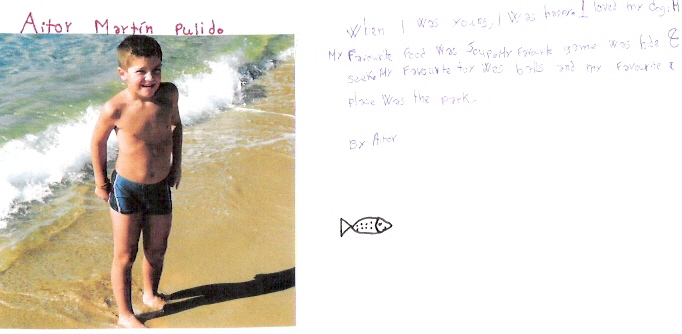 Aitor Martín Pulido
When I was young, I was happy. I loved my dog.
My Favourite Food was Soup. My Favourite game was hide &
seek. My Favourite toy was balls and my Favourite
place was the park.
By Aitor